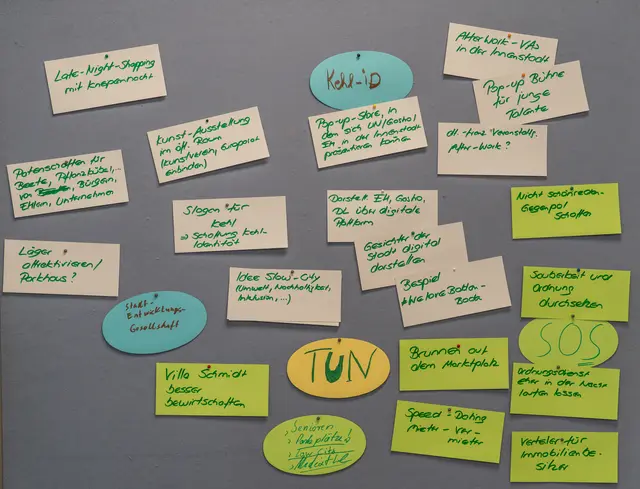 Late-Night-Shopping
mit Kneipennacht
Kehl-iD
AfterWork-VAs
in der Innenstadt
Pop-up Bühne
für junge
Talente
Kunst-Ausstellung
im öff. Raum
(Kunstverein, Europarat
einbinden)
Pop-up-Store, in
dem sich UN/Gastro/
EH, in der Innenstadt
präsentieren können
dt-franz. Veranstalt.
After-Work?
Patenschaften für
Beete, Pflanzkübel,...
von Bürgern,
EHlern, Unternehmer
Slogan für
Kehl
Schaffung Kehl-
Identität
Darstell. EH, Gastro,
DL über digitale
Plattform
Gesichter der
Stadt digital
darstellen
Nicht schönreden-
Gegenpol
schaffen
Läger
attraktivieren/
Parkhaus?
Idee Slow-City
(Umwelt, Nachhaltigkeit,
Inklusion,...)
Beispiel
Sauberkeit und
Ordnung
durchsetzen
Stadt-
Entwicklungs-
Gesellschaft
SOS
Villa Schmidt
besser
bewirtschaften
TUN
Brunnen auf
dem Marktplatz
Ordnungsdienst
eher in der Nacht
laufen lassen
Senioren
Parkplätze!
Speed-Dating
Mieter-Ver-
mieter
Verteiler für
Immobilienbe-
sitzer